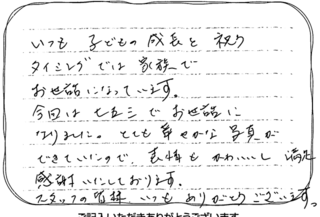 いつも 子どもの成長と祝う
タイミングでは 家族で
お世話になっています。
今回は 七五三で お世話に
なりました。とても 幸せな 写真が
できていたので、表情も かわいいし 満足
感謝いたしております。
スタッフの皆様 いつも ありがとうございますっ
ご記入いただきありがとうございます